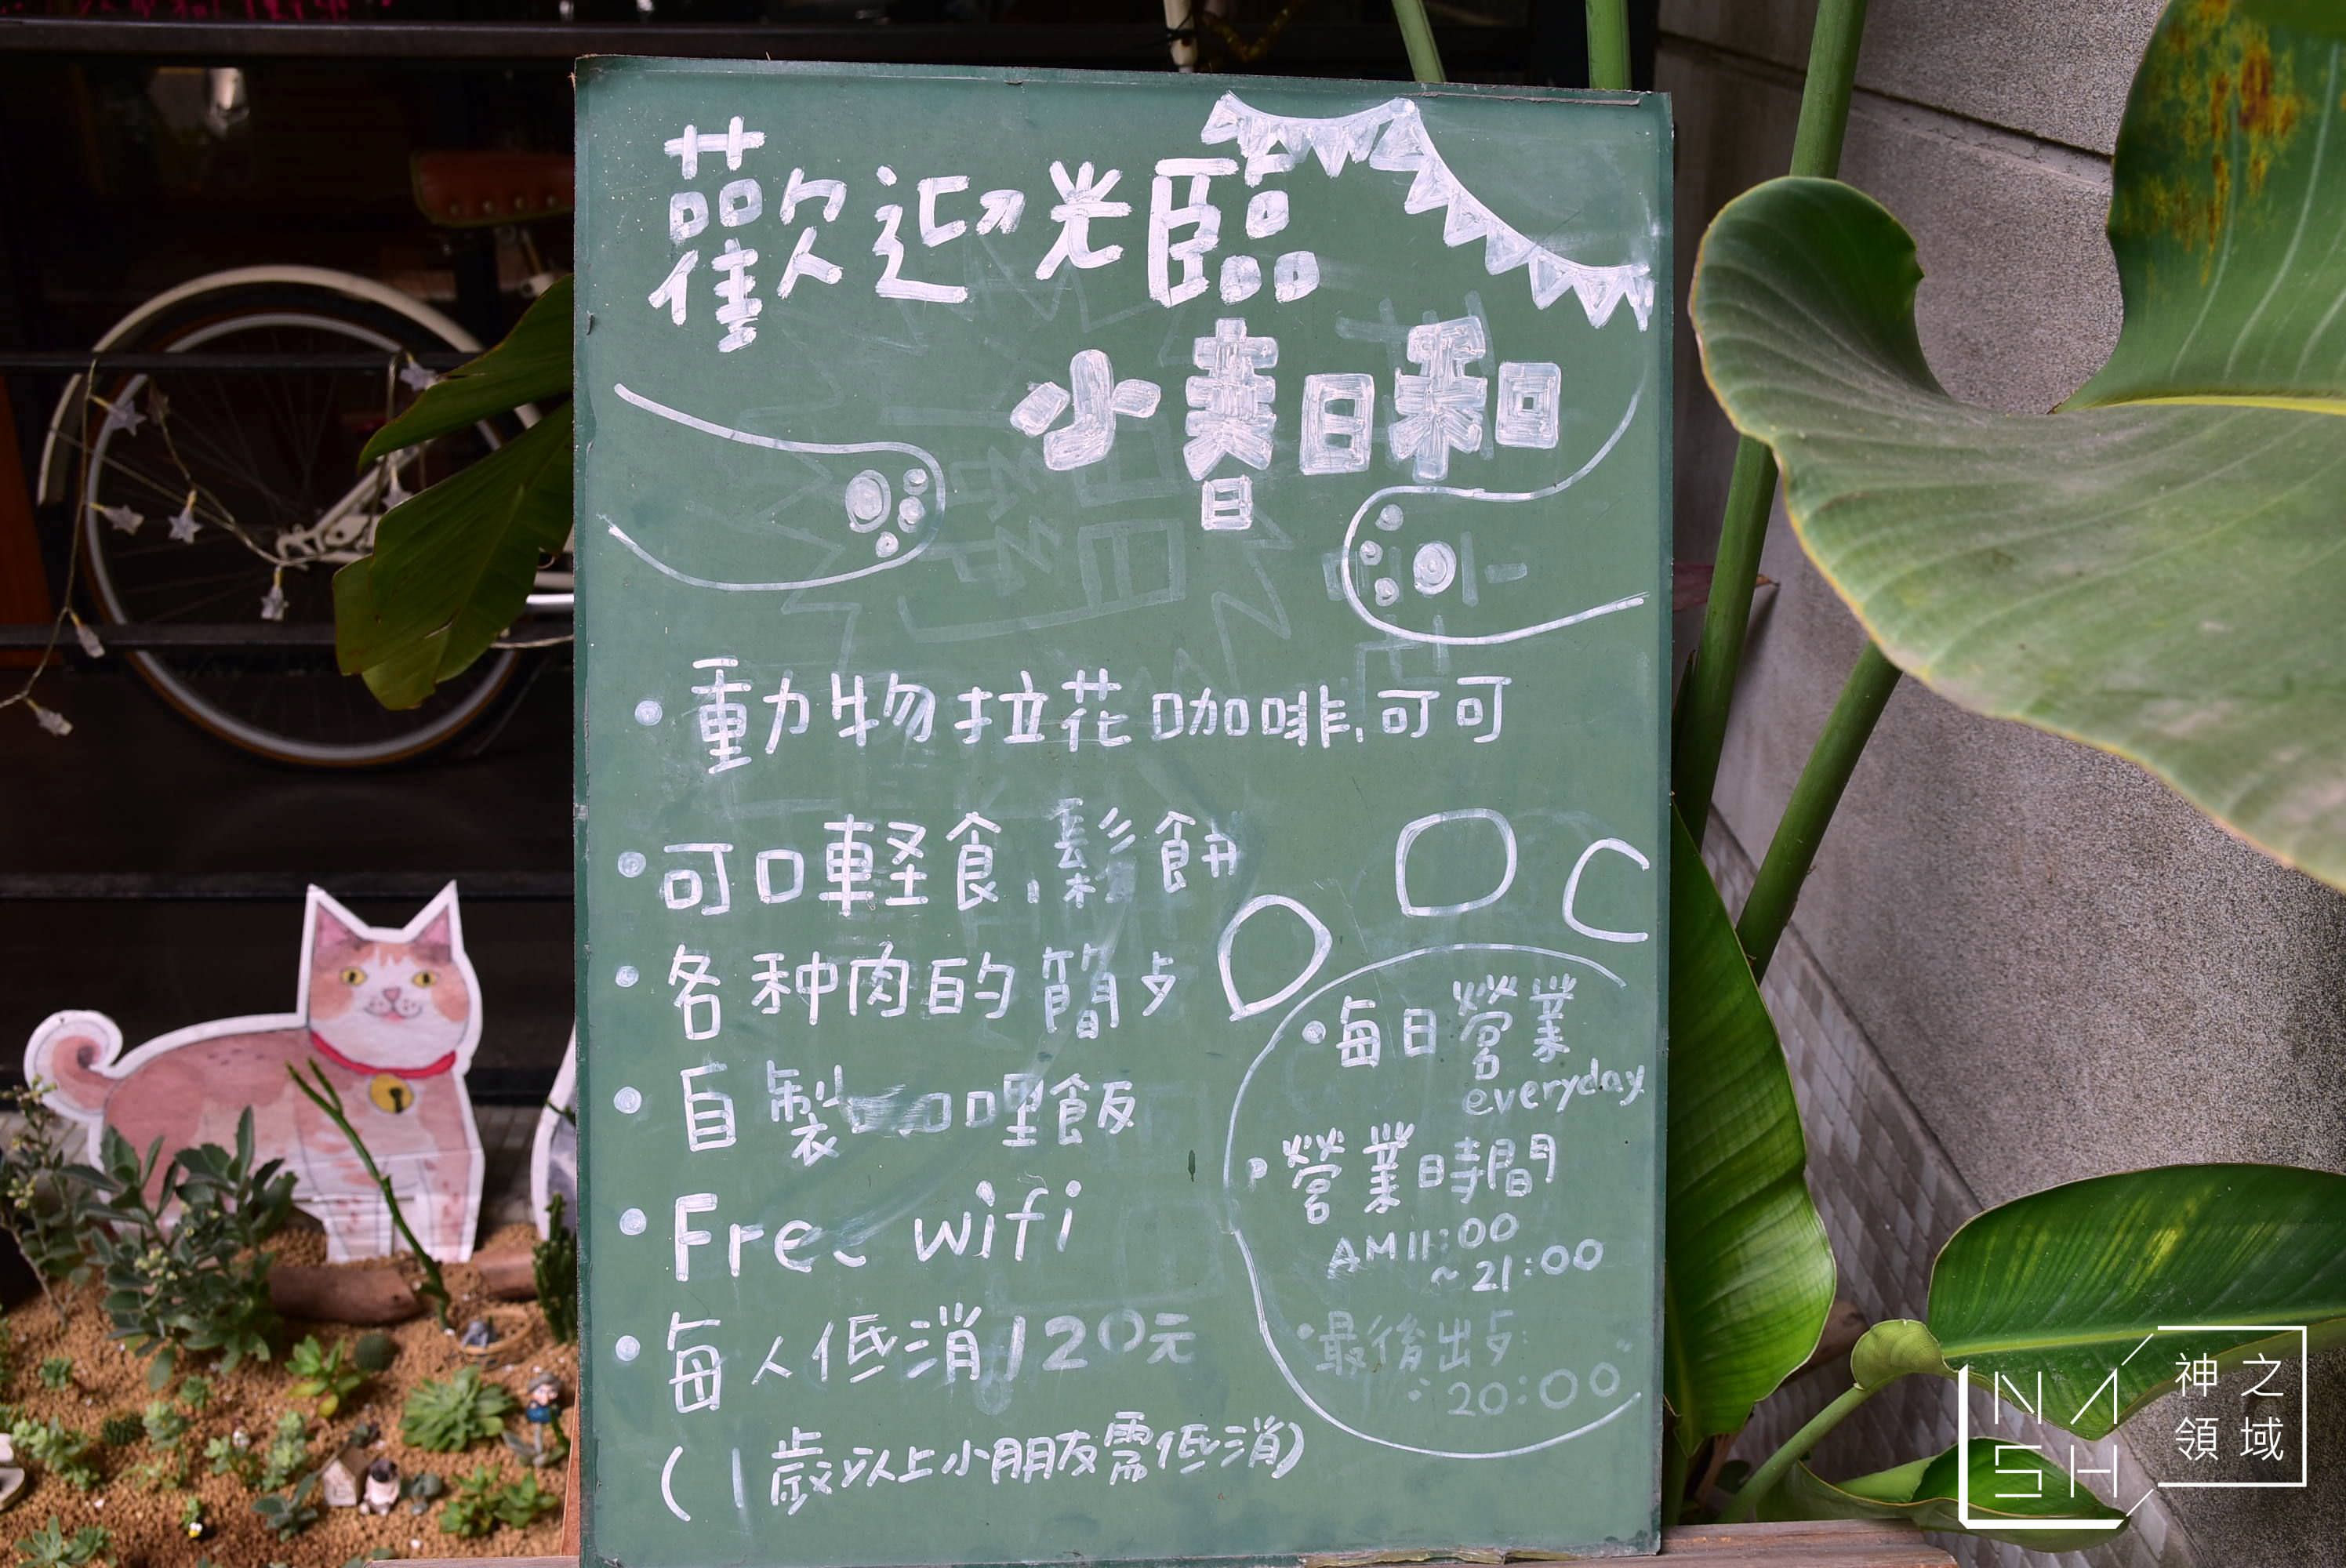 歡迎光臨
小春日和
• 動物拉花咖啡、可可
• 可口輕食、鬆餅
• 各种肉的簡歩
• 自製咖哩飯
• Free wifi
• 每人低消120元
(1歲以上小朋友需低消)
• 每日營業
everyday
• 營業時間
AM 11:00
~21:00
• 最後出歩
20:00
NASH
神之
領域